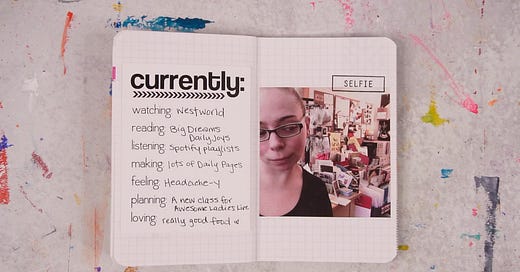 currently:
watching Westworld
reading Big Dreams
Daily Joys
listening Spotify playlists
making lots of Daily Pages
feeling Headache-y
planning A new class for
Awesome Ladies Live
loving really good food
SELFIE